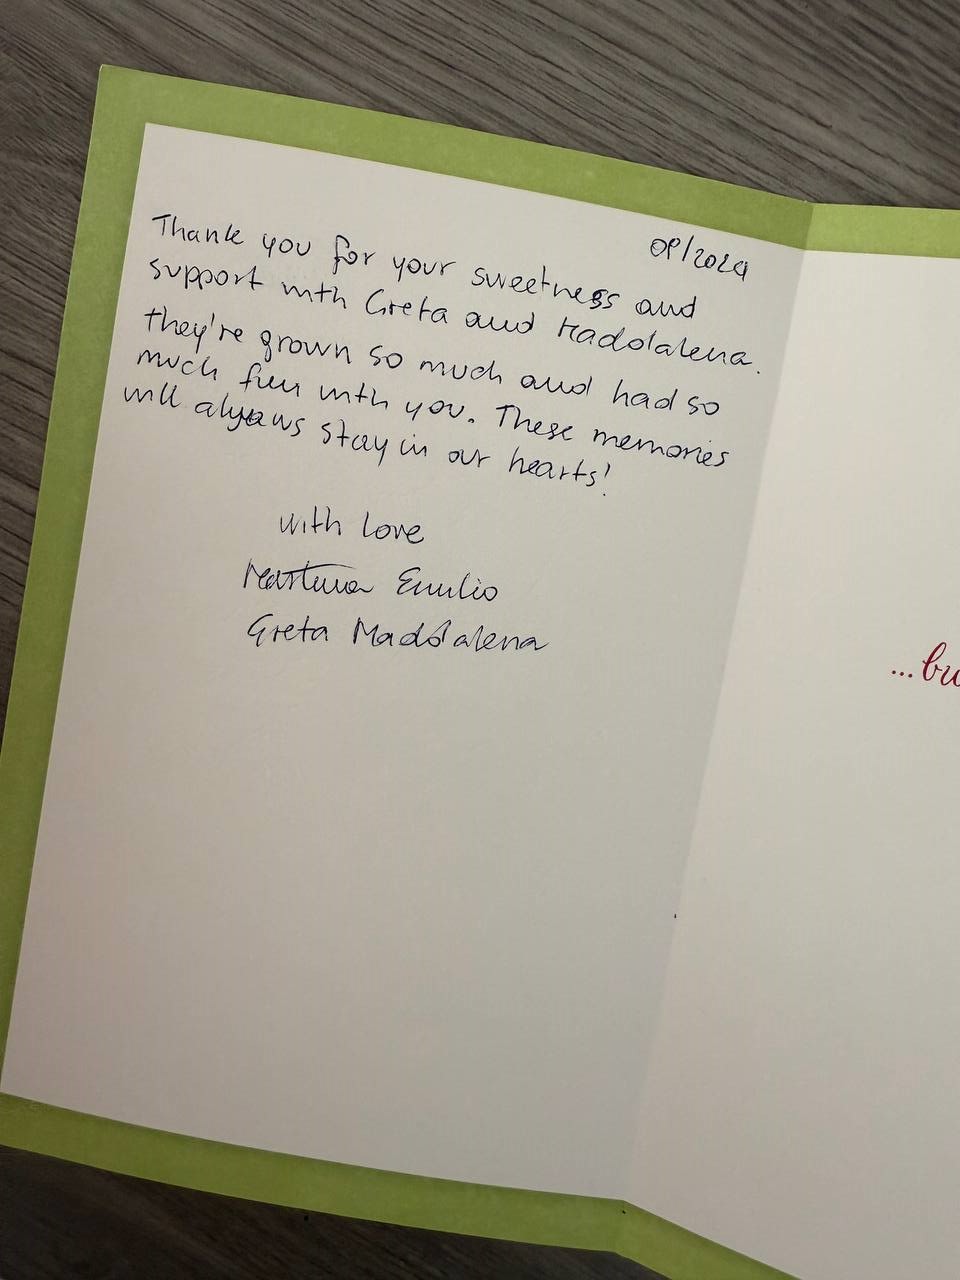 09/2024
Thank you for your sweetness and
support with Greta and Maddalena.
they're grown so much and had so
much fun with you. These memories
will always stay in our hearts!
with love
Martina Emilio
Greta Maddalena
...bu